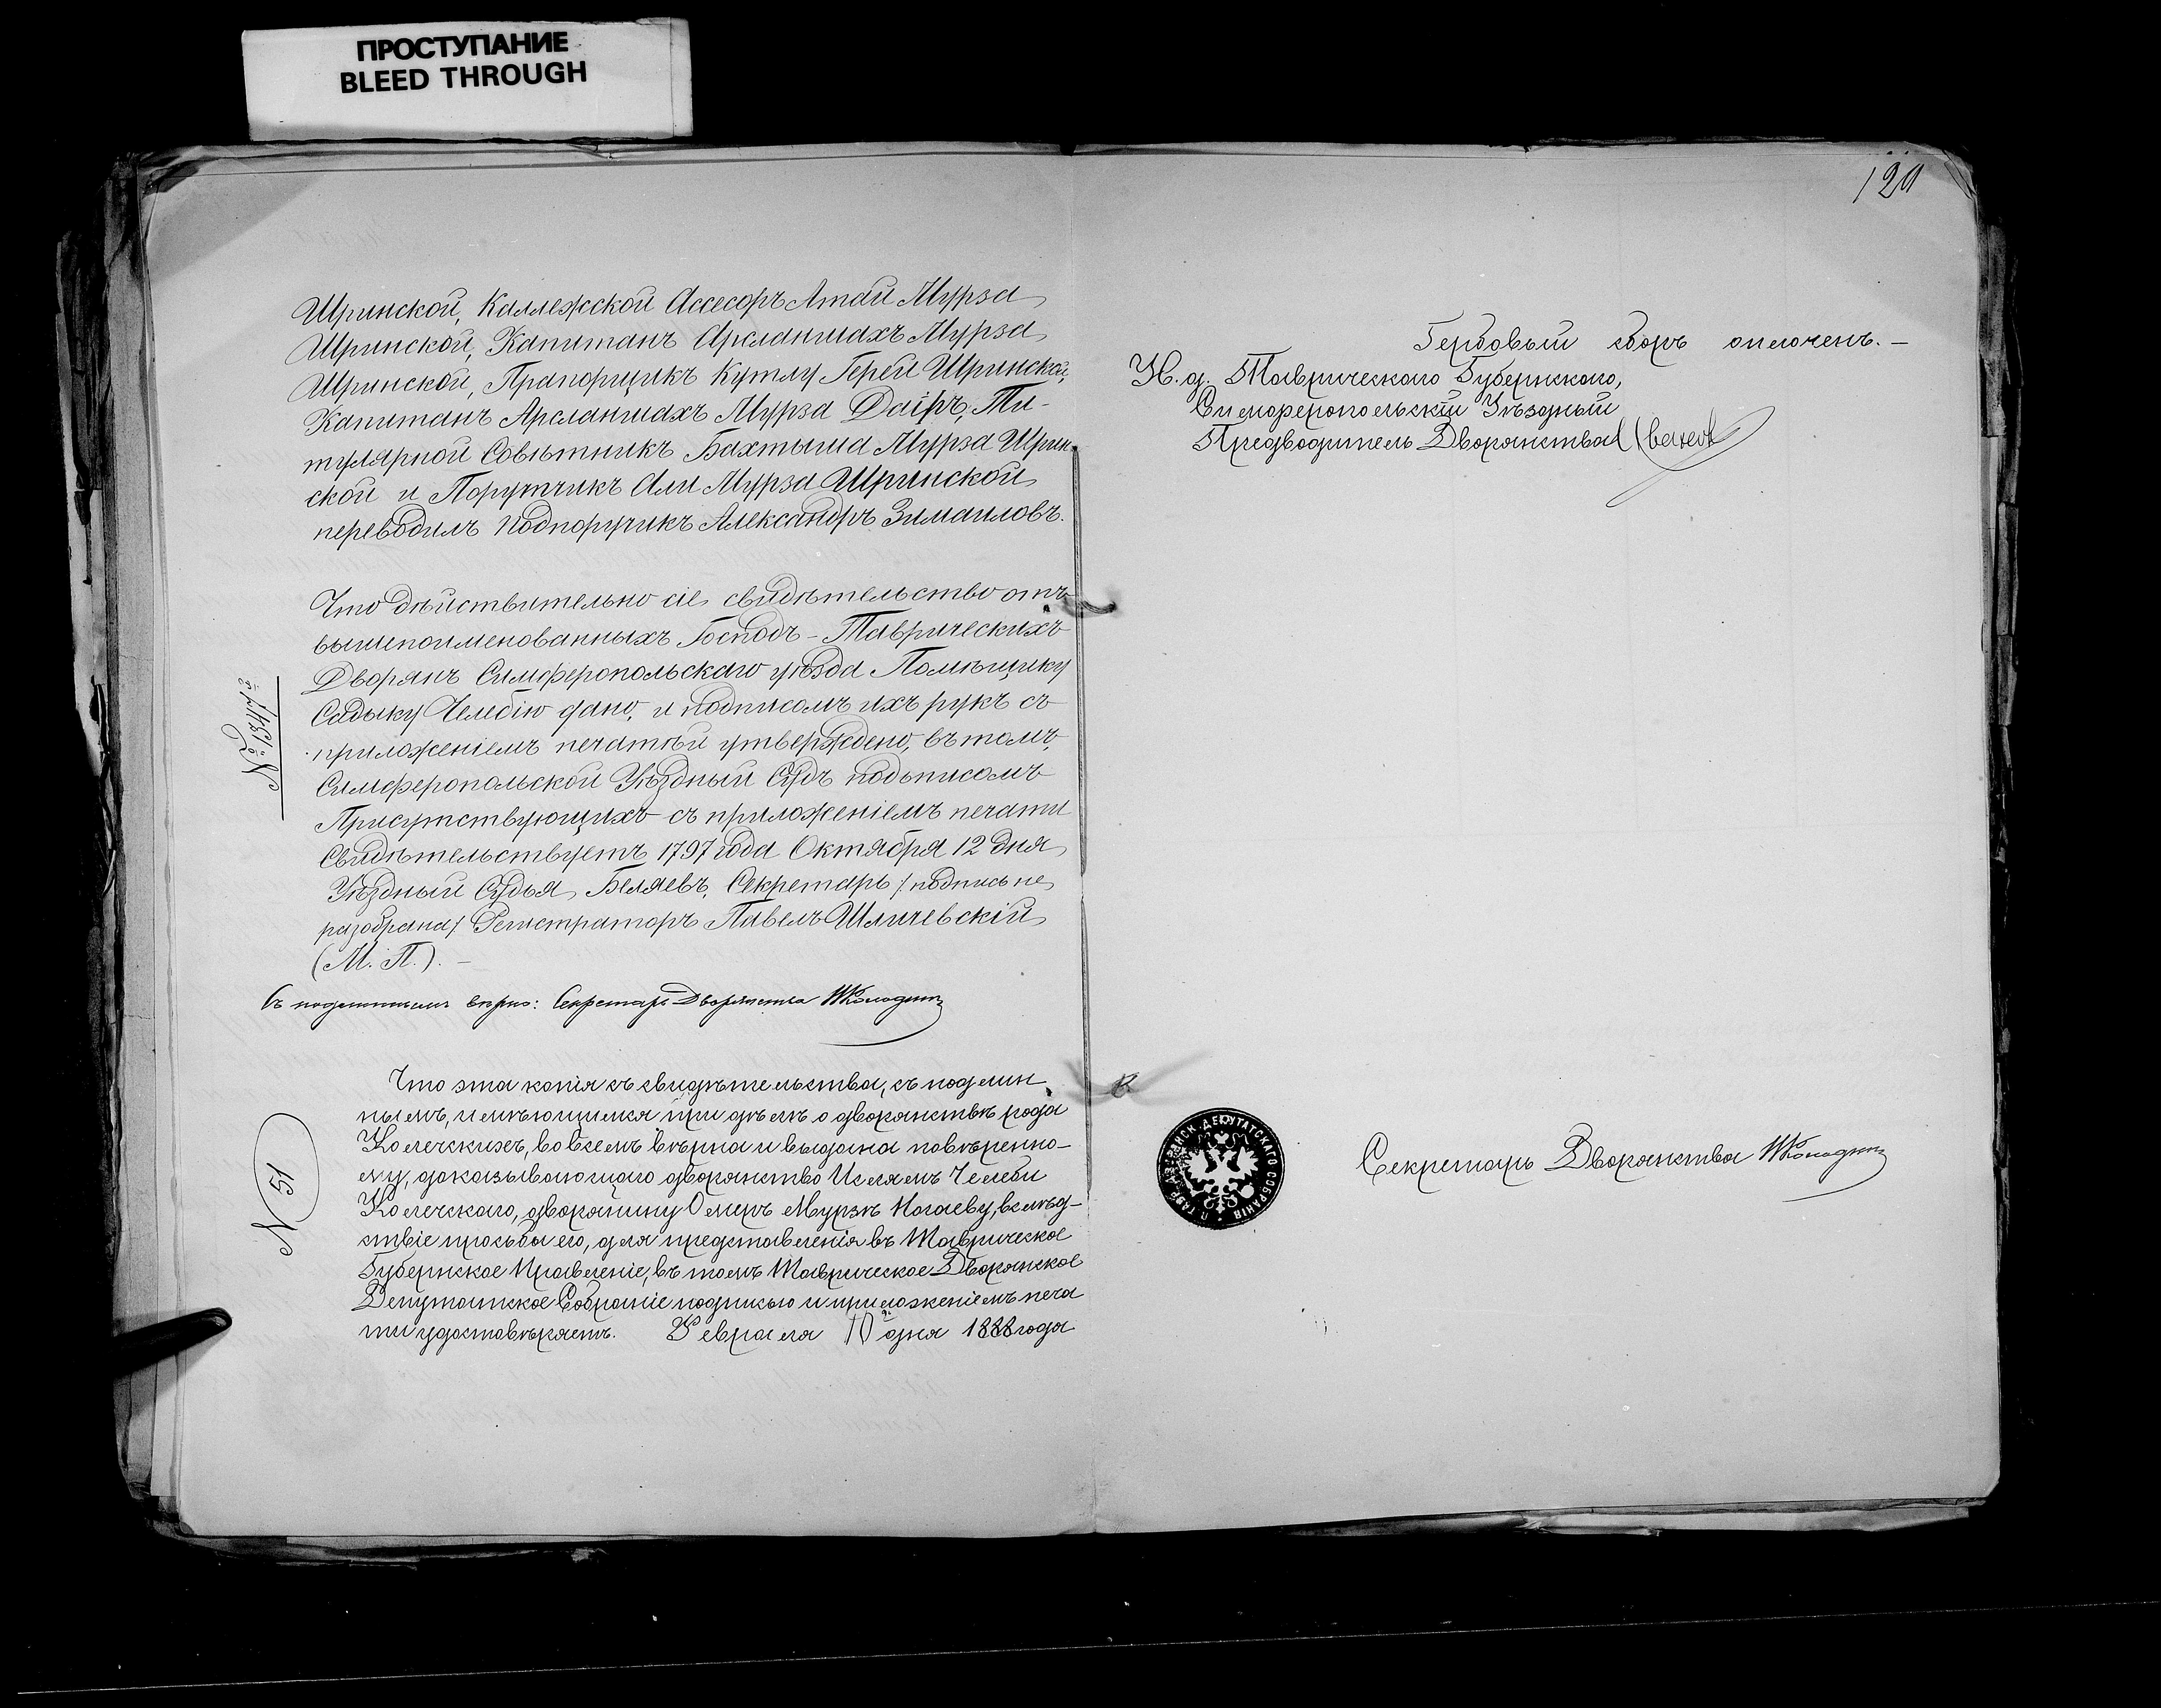 ПРОСТУПАНИЕ
BLEED THROUGH
Ширинской, Каллежской Ассесоръ Атай Мурза
Ширинской, Капитанъ Арсланшахъ Мурза
Ширинской, Прапорщикъ Кутлу Герей Ширинской,
Капитанъ Арсланшахъ Мурза Даіръ, Ти-
тулярной Совѣтникъ Бахтыша Мурза Ширин
ской и Порутчикъ Али Мурза Ширинской
переводилъ Подпоручикъ Александръ Змаиловъ.
Что дѣйствительно сіе свидѣтельство отъ
вышепоименованныхъ Господъ - Таврическихъ
Дворянъ Симферопольскаго уѣзда Помѣщику
Садыку Челебію дано, и подписомъ ихъ рукъ съ
приложеніемъ печатѣй утверждено, въ томъ,
Симферопольской Уѣздный Судъ подписомъ
Присутствующихъ съ приложеніемъ печати
Свидѣтельствуетъ 1797 года Октября 12 дня
Уѣздный Судья Беляевъ, Секретарь / подпись не
разобрана / Регистраторъ Павелъ Шличевскій
(М. П.). -
№ 1431.
Съ подлиннымъ вѣрно: Секретарь Дворянства
Что эта копія съ свидѣтельства, съ подлин
нымъ, имѣющимся при дѣлѣ о дворянствѣ рода
Колечскихъ, во всемъ вѣрна и выдана повѣренно-
му, доказывающаго дворянство Ислямъ Челеби
Колечскаго, дворянину Омеръ Мурзѣ Ногаеву, вслѣд-
ствіе просьбы его, для представленія въ Таврическое
Губернское Правленіе, въ томъ Таврическое Дворянское
Депутатское Собраніе подписью и приложеніемъ печа
ти удостовѣряетъ. Февраля 10 дня 1888 года
№ 51
120
Гербовый сборъ оплоченъ. -
И. д. Таврическаго Губернскаго,
Симферопольскій Уѣздный
Предводитель Дворянства
ДЕПУТАТСКАГО СОБРАНІЯ
Секретарь Дворянства